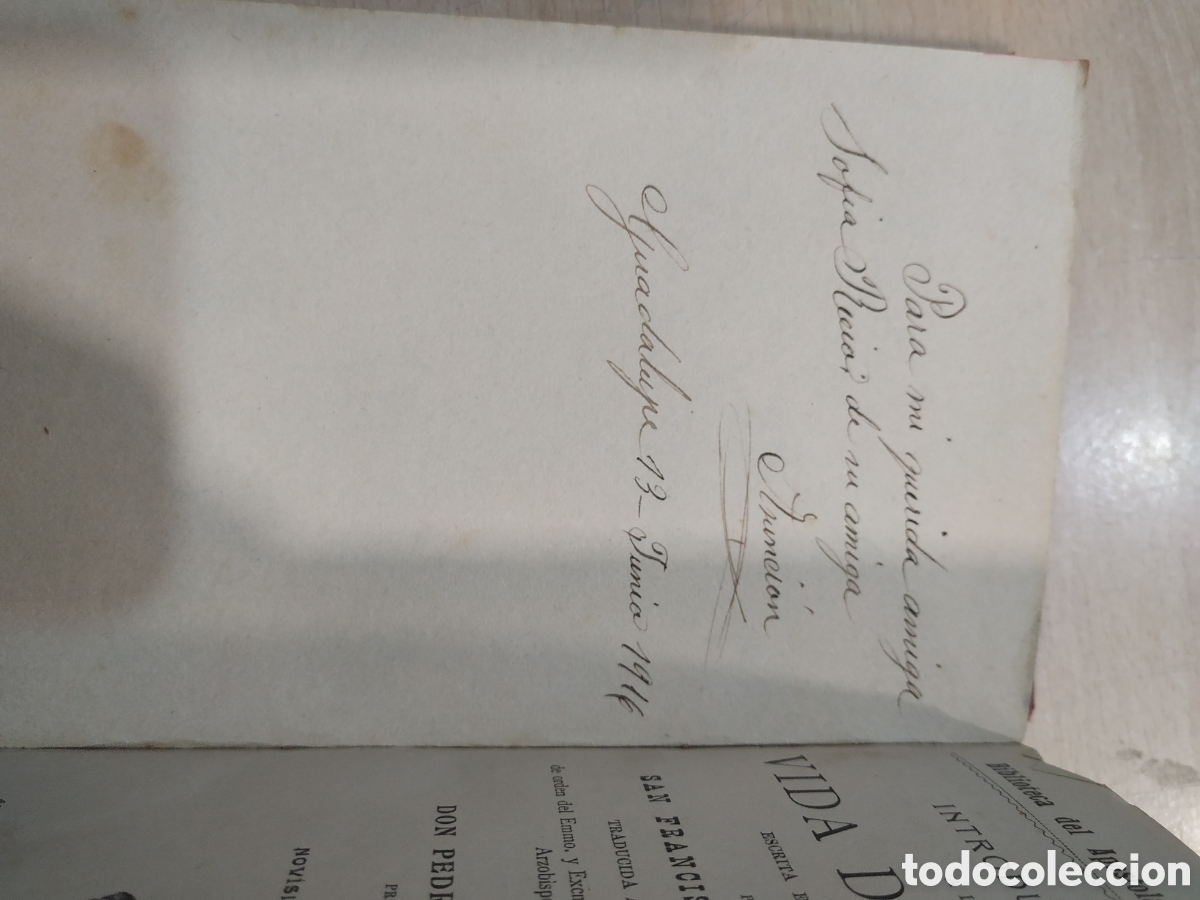 Para mi querida amiga
Sofia Recio, de su amiga
Asunción
Guadalupe 13-Junio 1916
Biblioteca del Apostol
INTRO
VIDA D
ESCRITA
SAN FRANCIS
TRADUCIDA A
de orden del Emmo. y Excm
Arzobisp
DON PEDR
PR
NOVIS
todocoleccion
todocoleccion.net